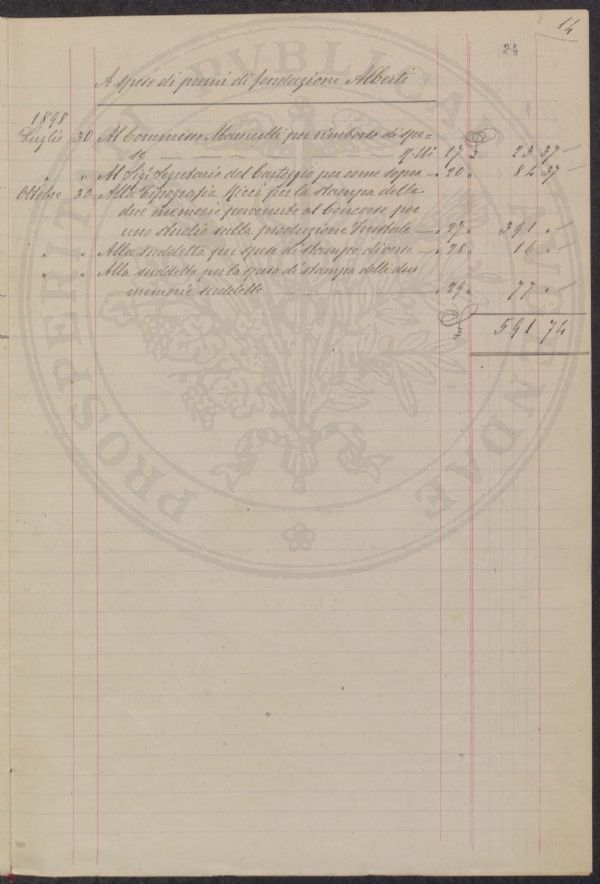 14
24
A spese di premi di fondazione Alberti
1898
Luglio 30 Al Commesso Mancelli per rimborso di spe-
se 17 £ 23 37
" " Al Sig. Segretario del Carteggio per come sopra - " 20 " 84 37
Ottobre 30 Alla Tipografia Ricci per la stampa delle
due memorie pervenute al Concorso per
uno studio sulla produzione Forestale - " 27 " 391 "
" " Alla suddetta per spese di stampe diverse - " 28 " 16 "
" " Alla suddetta per la spesa di stampa delle due
memorie suddette " 29 " 77 "
591 74
PROSPERITATI PUBLICAE AUGENDAE